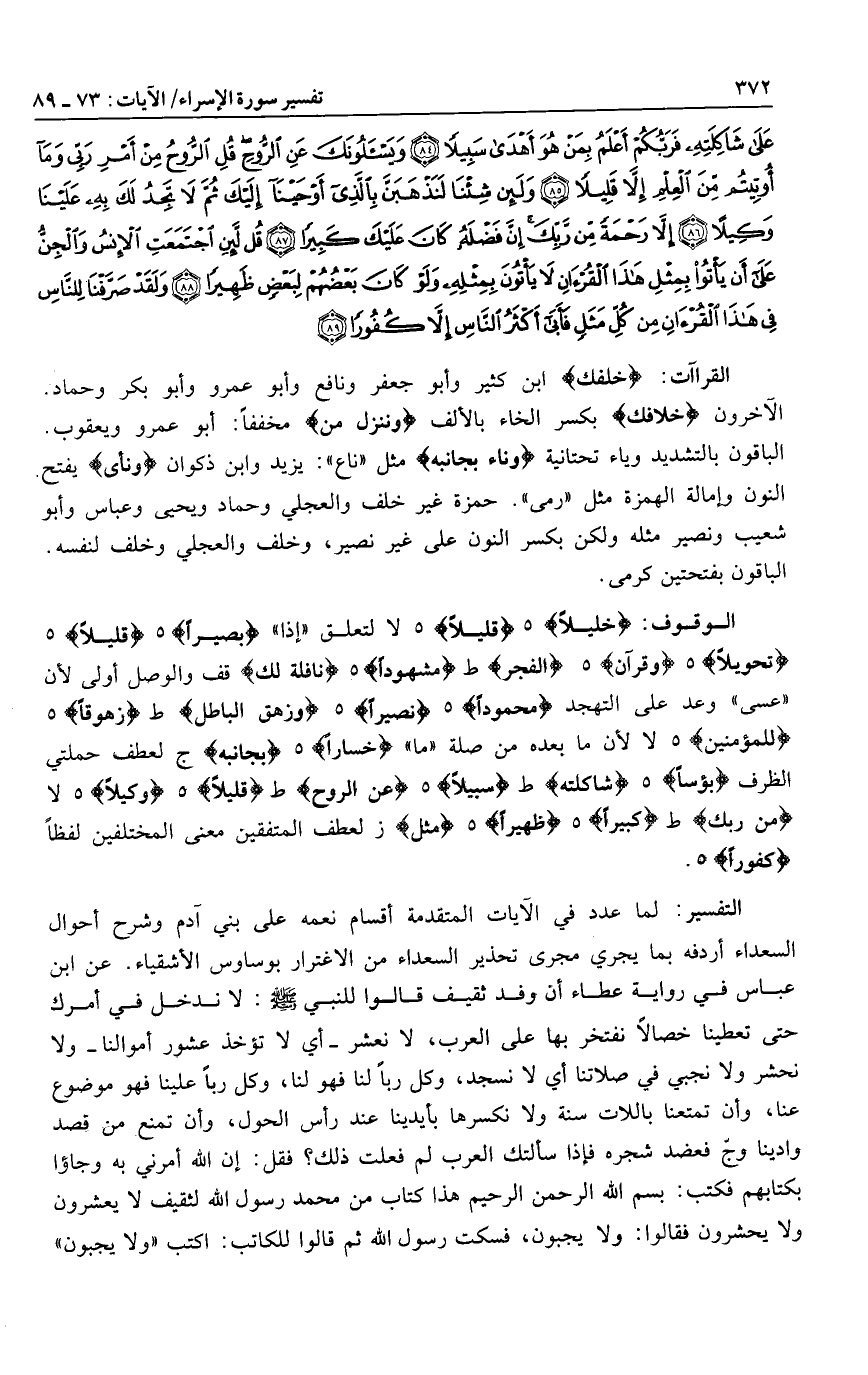 ٣٧٢
تفسير سورة الإسراء/ الآيات: ٧٣ ـ ٨٩
عَلَىٰ شَاكِلَتِهِۦ فَرَبُّكُمْ أَعْلَمُ بِمَنْ هُوَ أَهْدَىٰ سَبِيلًا ﴿٨٤﴾ وَيَسْـَٔلُونَكَ عَنِ ٱلرُّوحِ ۖ قُلِ ٱلرُّوحُ مِنْ أَمْرِ رَبِّى وَمَآ
أُوتِيتُم مِّنَ ٱلْعِلْمِ إِلَّا قَلِيلًا ﴿٨٥﴾ وَلَئِن شِئْنَا لَنَذْهَبَنَّ بِٱلَّذِىٓ أَوْحَيْنَآ إِلَيْكَ ثُمَّ لَا تَجِدُ لَكَ بِهِۦ عَلَيْنَا
وَكِيلًا ﴿٨٦﴾ إِلَّا رَحْمَةً مِّن رَّبِّكَ ۚ إِنَّ فَضْلَهُۥ كَانَ عَلَيْكَ كَبِيرًا ﴿٨٧﴾ قُل لَّئِنِ ٱجْتَمَعَتِ ٱلْإِنسُ وَٱلْجِنُّ
عَلَىٰٓ أَن يَأْتُوا۟ بِمِثْلِ هَٰذَا ٱلْقُرْءَانِ لَا يَأْتُونَ بِمِثْلِهِۦ وَلَوْ كَانَ بَعْضُهُمْ لِبَعْضٍ ظَهِيرًا ﴿٨٨﴾ وَلَقَدْ صَرَّفْنَا لِلنَّاسِ
فِى هَٰذَا ٱلْقُرْءَانِ مِن كُلِّ مَثَلٍ فَأَبَىٰٓ أَكْثَرُ ٱلنَّاسِ إِلَّا كُفُورًا ﴿٨٩﴾
القراآت: ﴿خلفك﴾ ابن كثير وأبو جعفر ونافع وأبو عمرو وأبو بكر وحماد.
الآخرون ﴿خلافك﴾ بكسر الخاء بالألف ﴿وننزل من﴾ مخففاً: أبو عمرو ويعقوب.
الباقون بالتشديد وياء تحتانية ﴿وناء بجانبه﴾ مثل «ناع»: يزيد وابن ذكوان ﴿ونأى﴾ يفتح
النون وإمالة الهمزة مثل «رمى». حمزة غير خلف والعجلي وحماد ويحيى وعباس وأبو
شعيب ونصير مثله ولكن بكسر النون على غير نصير، وخلف والعجلي وخلف لنفسه.
الباقون بفتحتين كرمى.
الوقوف: ﴿خليلاً﴾ ٥ ﴿قليلاً﴾ ٥ لا لتعلق «إذا» ﴿بصيراً﴾ ٥ ﴿قليلاً﴾ ٥
﴿تحويلاً﴾ ٥ ﴿وقرآن﴾ ٥ ﴿الفجر﴾ ط ﴿مشهوداً﴾ ٥ ﴿نافلة لك﴾ قف والوصل أولى لأن
«عسى» وعد على التهجد ﴿محموداً﴾ ٥ ﴿نصيراً﴾ ٥ ﴿وزهق الباطل﴾ ط ﴿زهوقاً﴾ ٥
﴿للمؤمنين﴾ ٥ لا لأن ما بعده من صلة «ما» ﴿خساراً﴾ ٥ ﴿بجانبه﴾ ج لعطف حملتي
الظرف ﴿بؤساً﴾ ٥ ﴿شاكلته﴾ ط ﴿سبيلاً﴾ ٥ ﴿عن الروح﴾ ط ﴿قليلاً﴾ ٥ ﴿وكيلاً﴾ ٥ لا
﴿من ربك﴾ ط ﴿كبيراً﴾ ٥ ﴿ظهيراً﴾ ٥ ﴿مثل﴾ ز لعطف المتفقين معنى المختلفين لفظاً
﴿كفوراً﴾ ٥.
التفسير: لما عدد في الآيات المتقدمة أقسام نعمه على بني آدم وشرح أحوال
السعداء أردفه بما يجري مجرى تحذير السعداء من الاغترار بوساوس الأشقياء. عن ابن
عباس في رواية عطاء أن وفد ثقيف قالوا للنبي ﷺ: لا ندخل في أمرك
حتى تعطينا خصالاً نفتخر بها على العرب، لا نعشر ـ أي لا تؤخذ عشور أموالنا ـ ولا
نحشر ولا نجبي في صلاتنا أي لا نسجد، وكل رباً لنا فهو لنا، وكل رباً علينا فهو موضوع
عنا، وأن تمتعنا باللات سنة ولا نكسرها بأيدينا عند رأس الحول، وأن تمنع من قصد
وادينا وجّ فعضد شجره فإذا سألتك العرب لم فعلت ذلك؟ فقل: إن الله أمرني به وجاؤا
بكتابهم فكتب: بسم الله الرحمن الرحيم هذا كتاب من محمد رسول الله لثقيف لا يعشرون
ولا يحشرون فقالوا: ولا يجبون، فسكت رسول الله ثم قالوا للكاتب: اكتب «ولا يجبون»